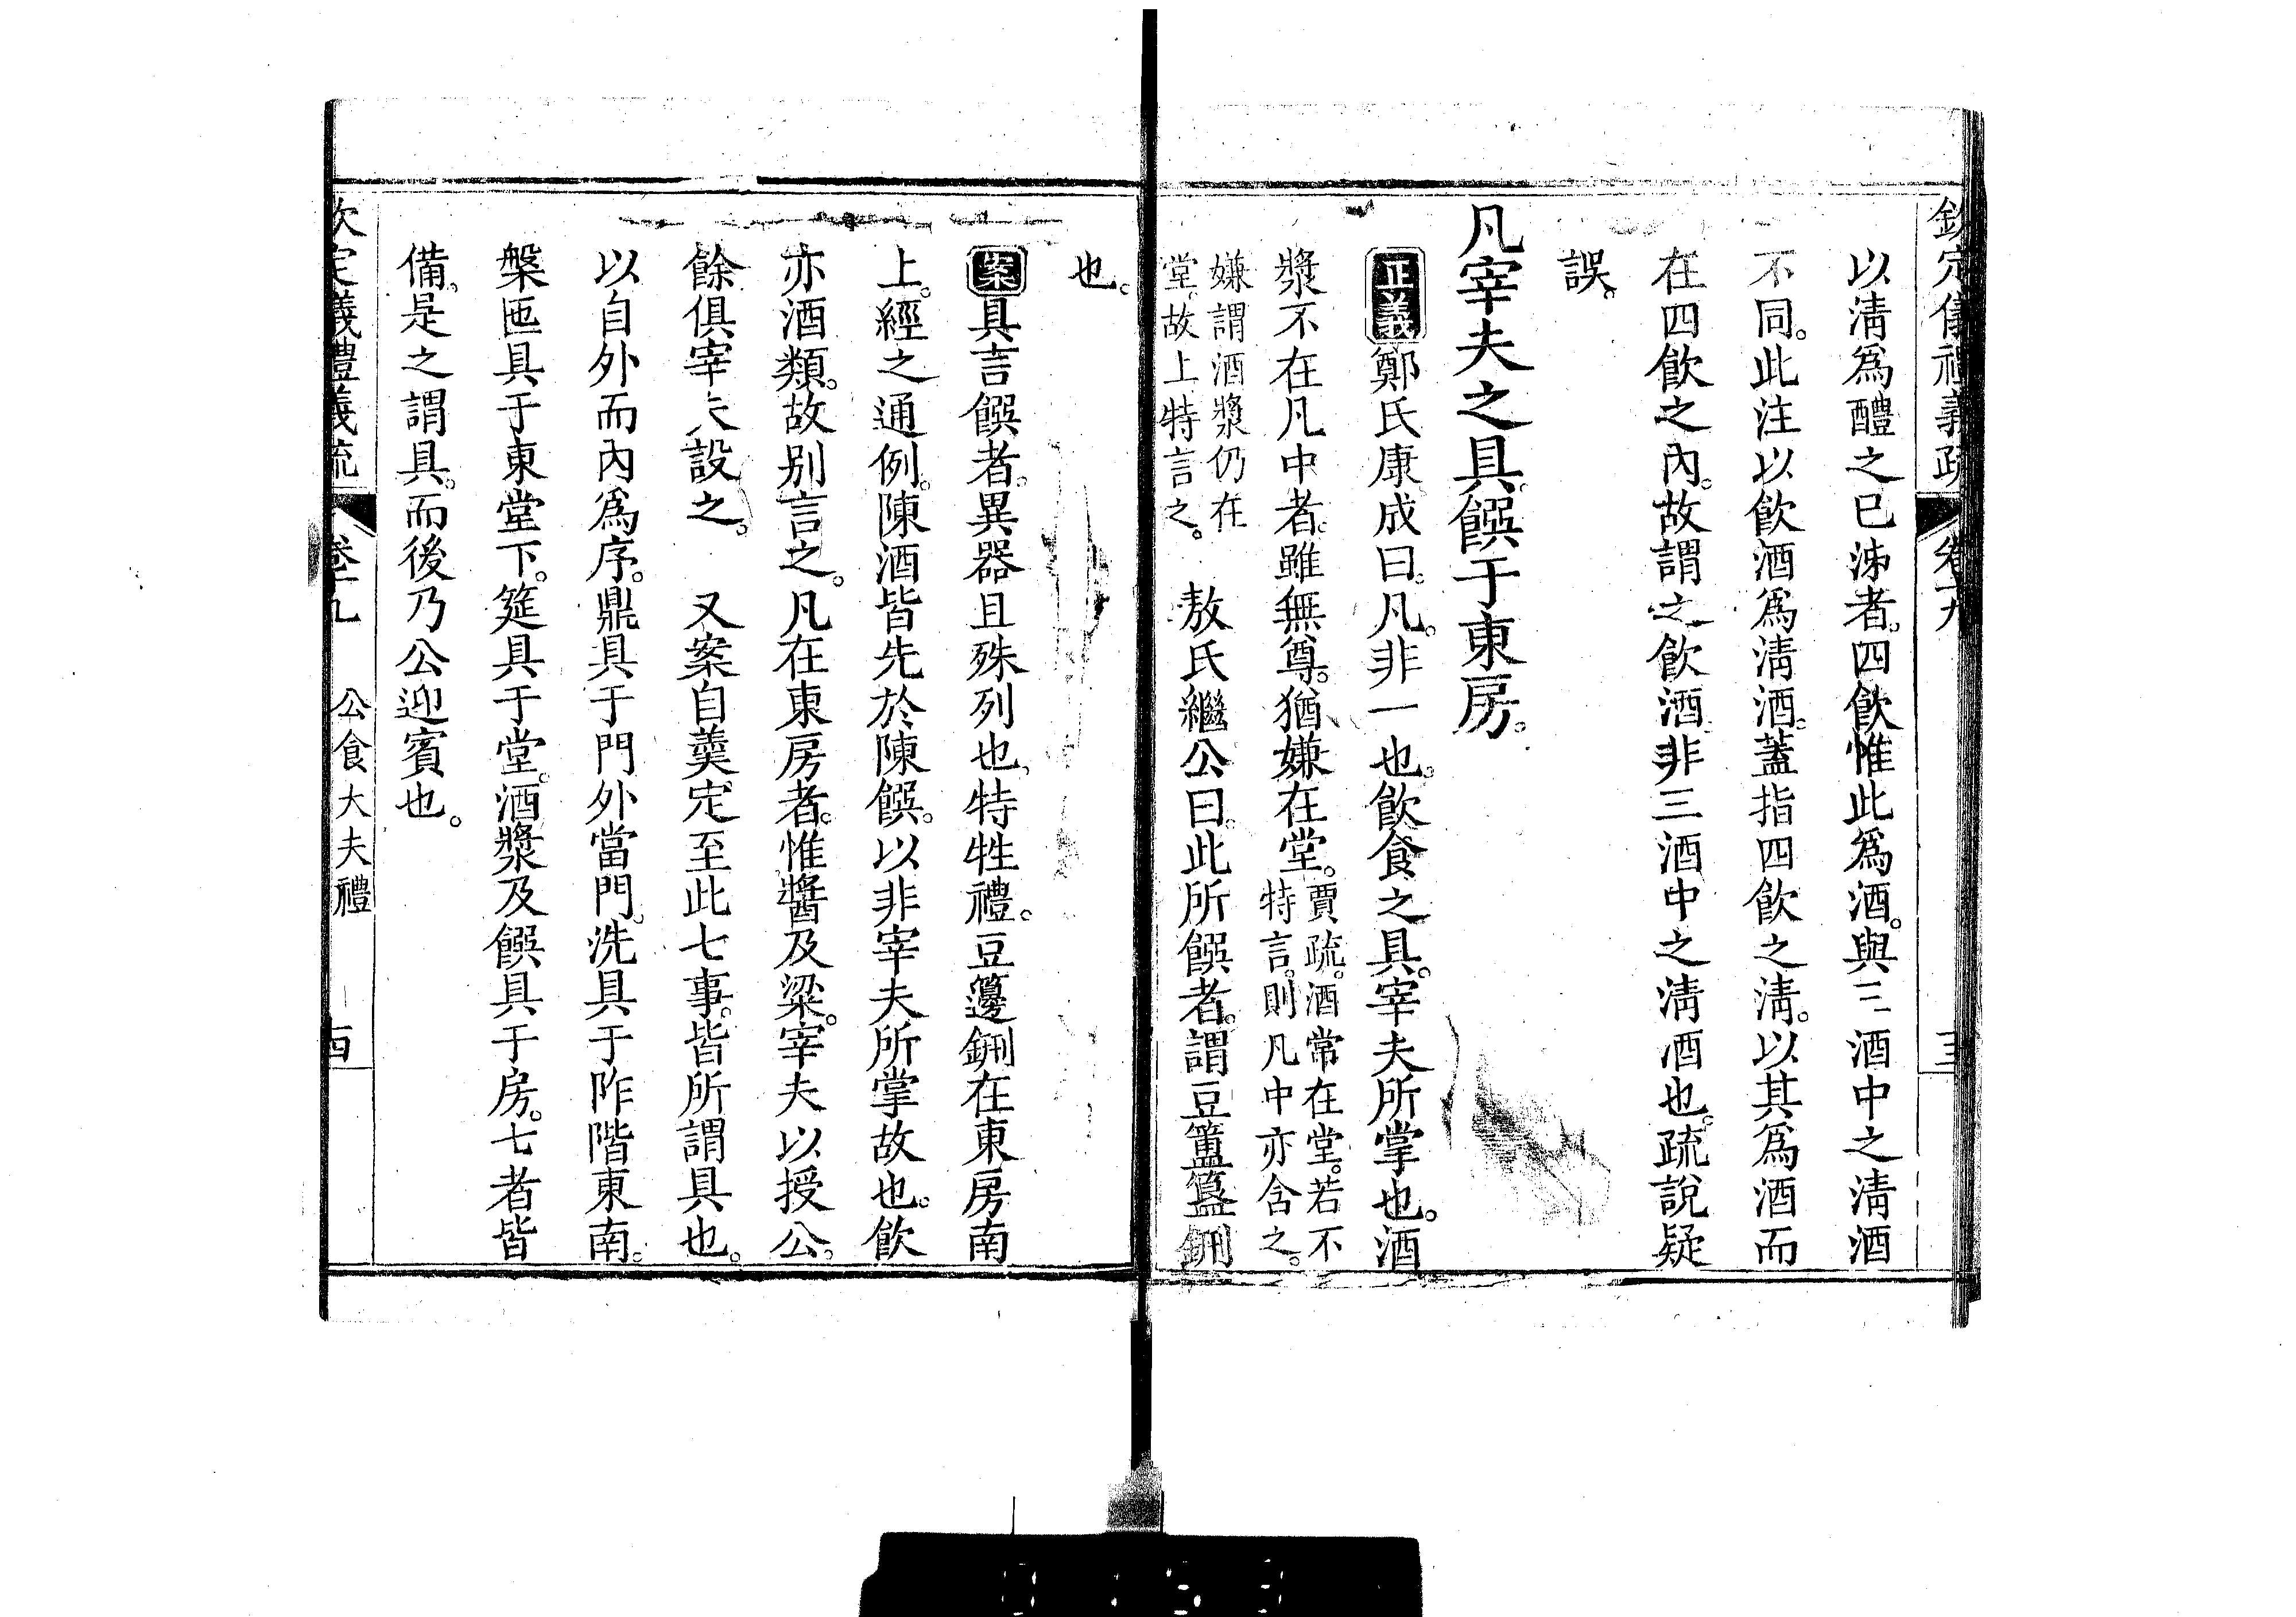 欽定儀禮義疏 卷十九
以淸爲醴之已泲者。四飮惟此爲酒。與三酒中之淸酒
不同。此注以飮酒爲淸酒。蓋指四飮之淸。以其爲酒而
在四飮之內。故謂之飮酒。非三酒中之淸酒也。疏說疑
誤。
凡宰夫之具。饌于東房。
正義鄭氏康成曰。凡。非一也。飮食之具。宰夫所掌也。酒
漿不在凡中者。雖無尊。猶嫌在堂。賈疏。酒常在堂。若不
特言。則凡中亦含之。
嫌謂酒漿仍在
堂。故上特言之。
敖氏繼公曰。此所饌者。謂豆簠簋鉶
也。
案具言饌者。異器且殊列也。特牲禮。豆籩鉶在東房南
上。經之通例。陳酒皆先於陳饌。以非宰夫所掌故也。飮
亦酒類。故别言之。凡在東房者。惟醬及粱。宰夫以授公。
餘俱宰夫設之。 又案自羹定至此七事。皆所謂具也。
以自外而內爲序。鼎具于門外當門。洗具于阼階東南。
槃匜具于東堂下。筵具于堂。酒漿及饌具于房。七者皆
備。是之謂具。而後乃公迎賓也。
欽定儀禮義疏 卷十九 公食大夫禮